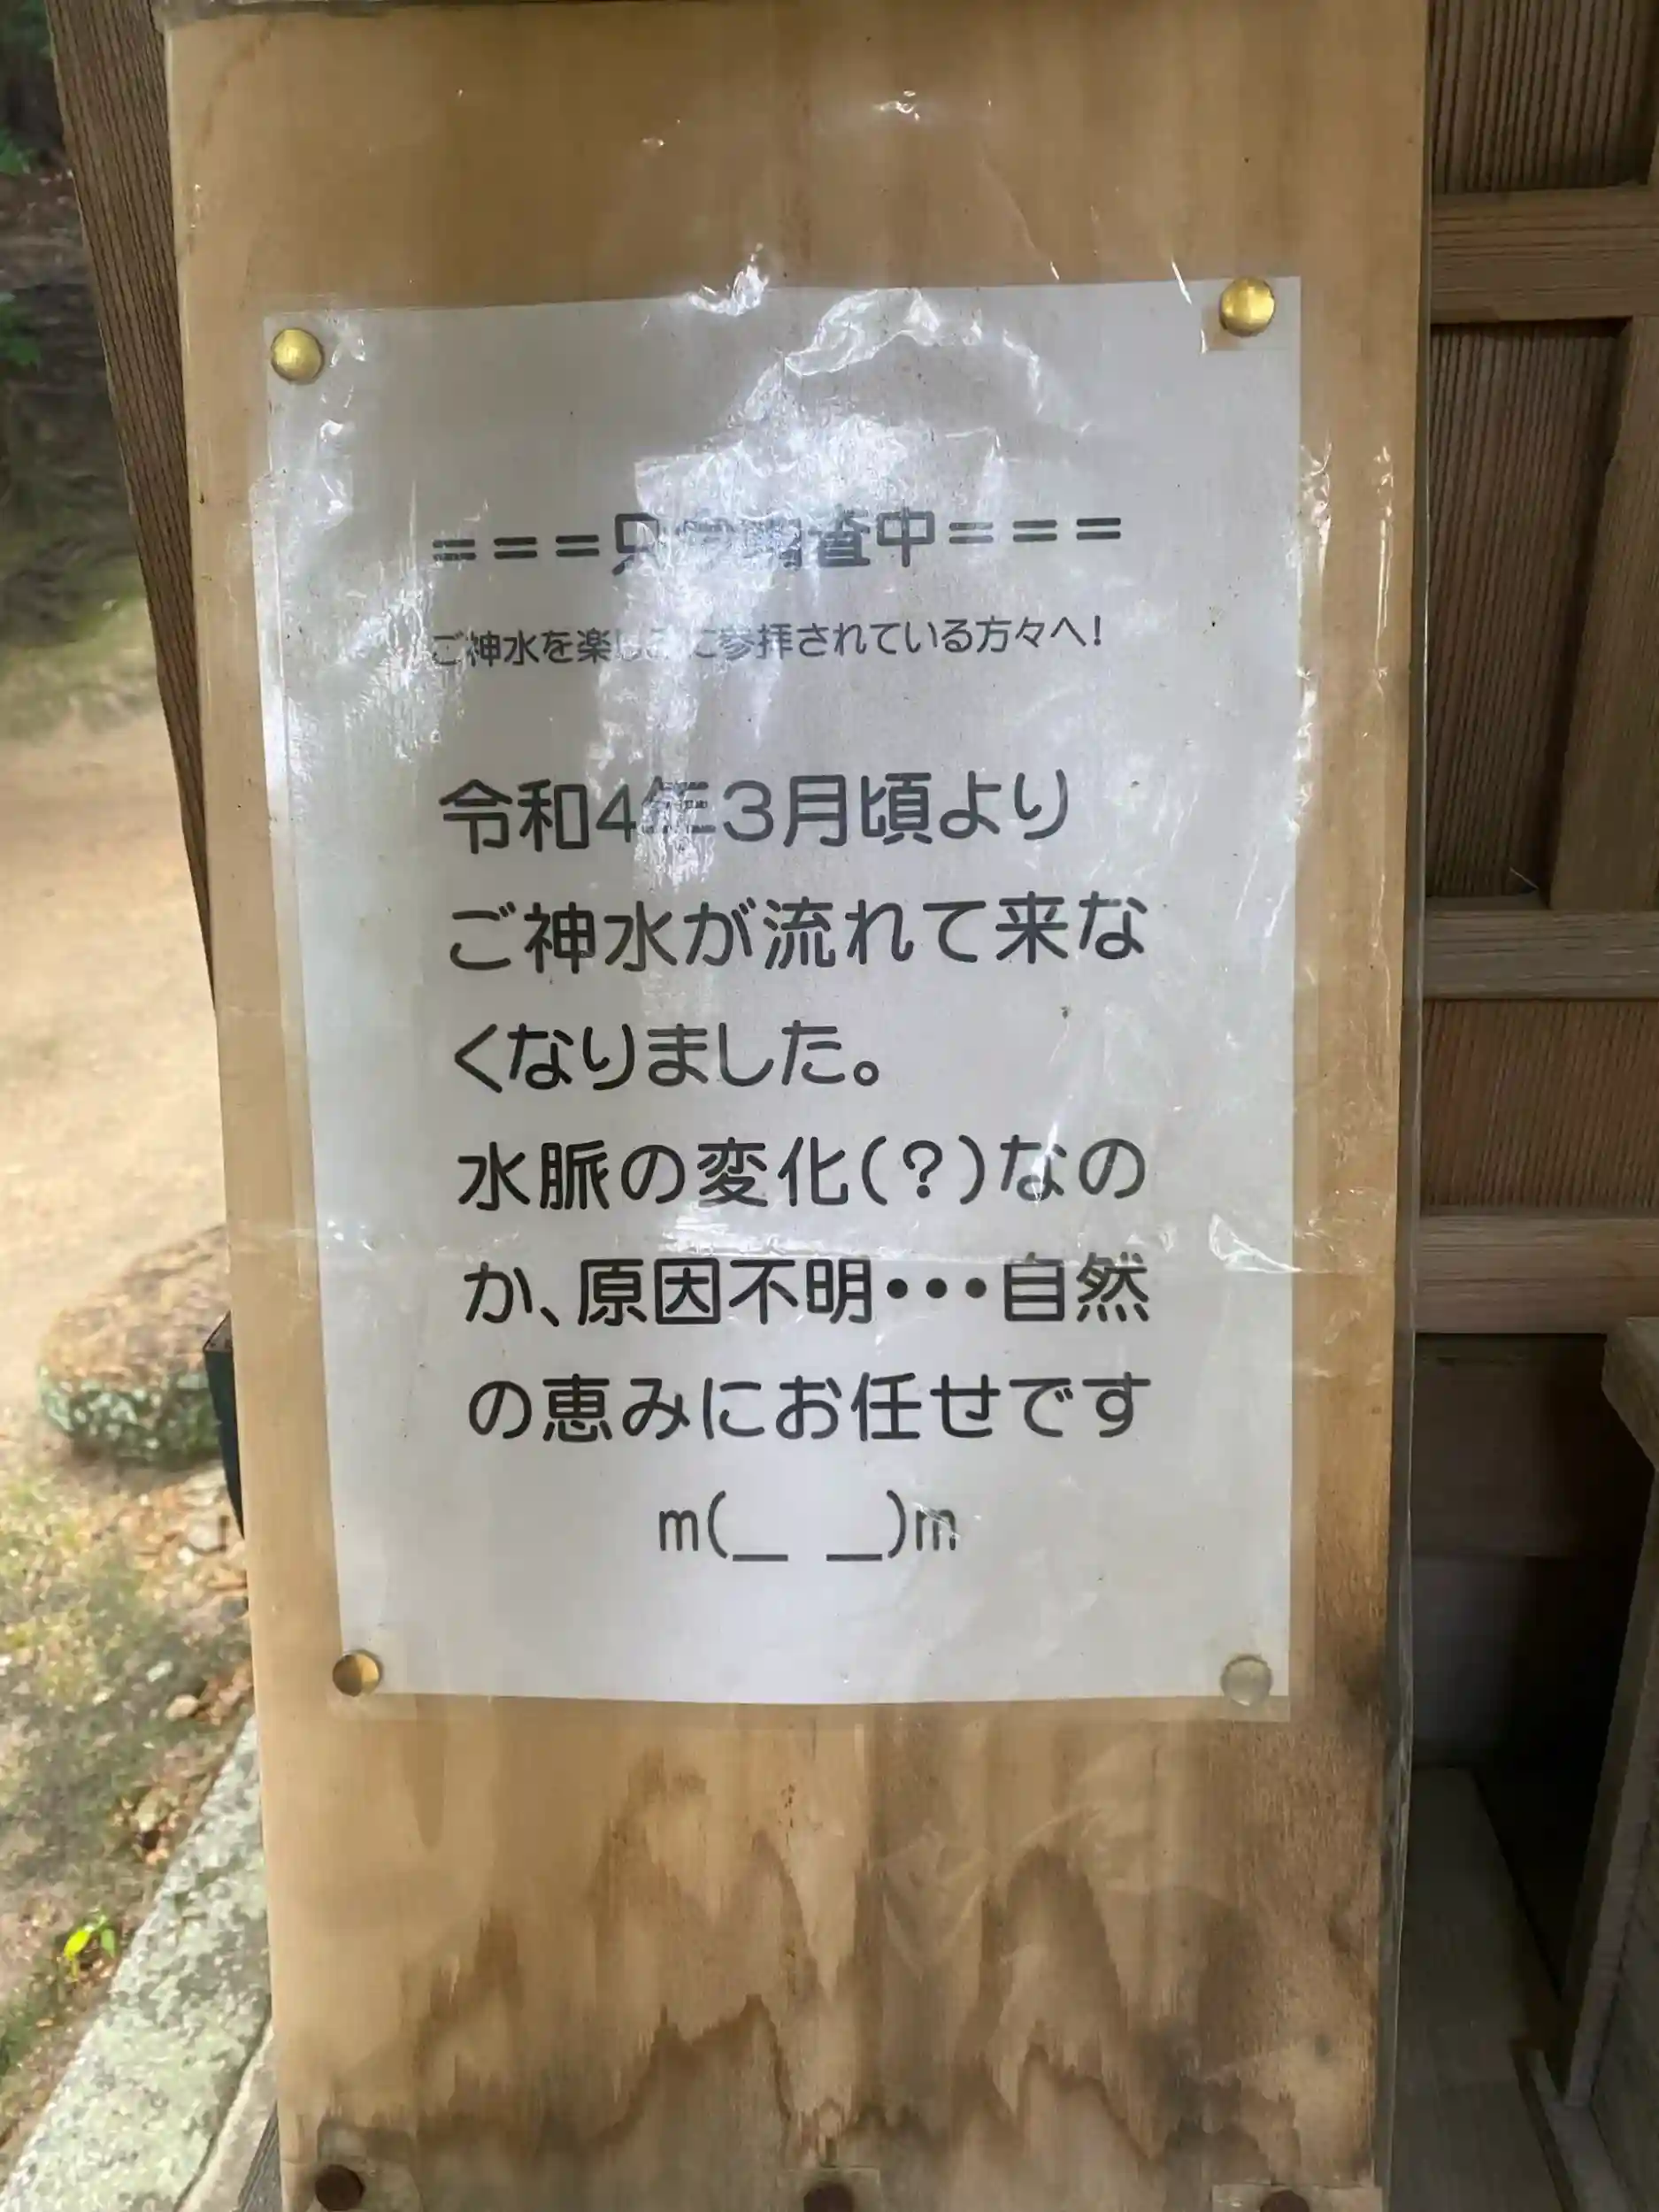 ===只今調査中===
ご神水を楽しみに参拝されている方々へ!
令和4年3月頃より
ご神水が流れて来な
くなりました。
水脈の変化(?)なの
か、原因不明・・・自然
の恵みにお任せです
m(_ _)m